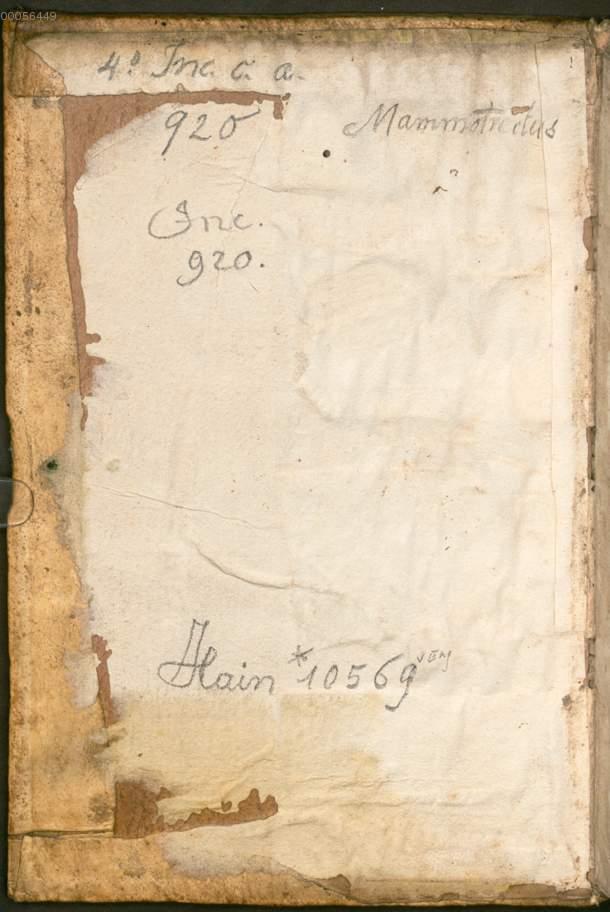 00056449
4.º Inc. c. a.
920
Mammotrectus
Inc.
920.
Hain *10569